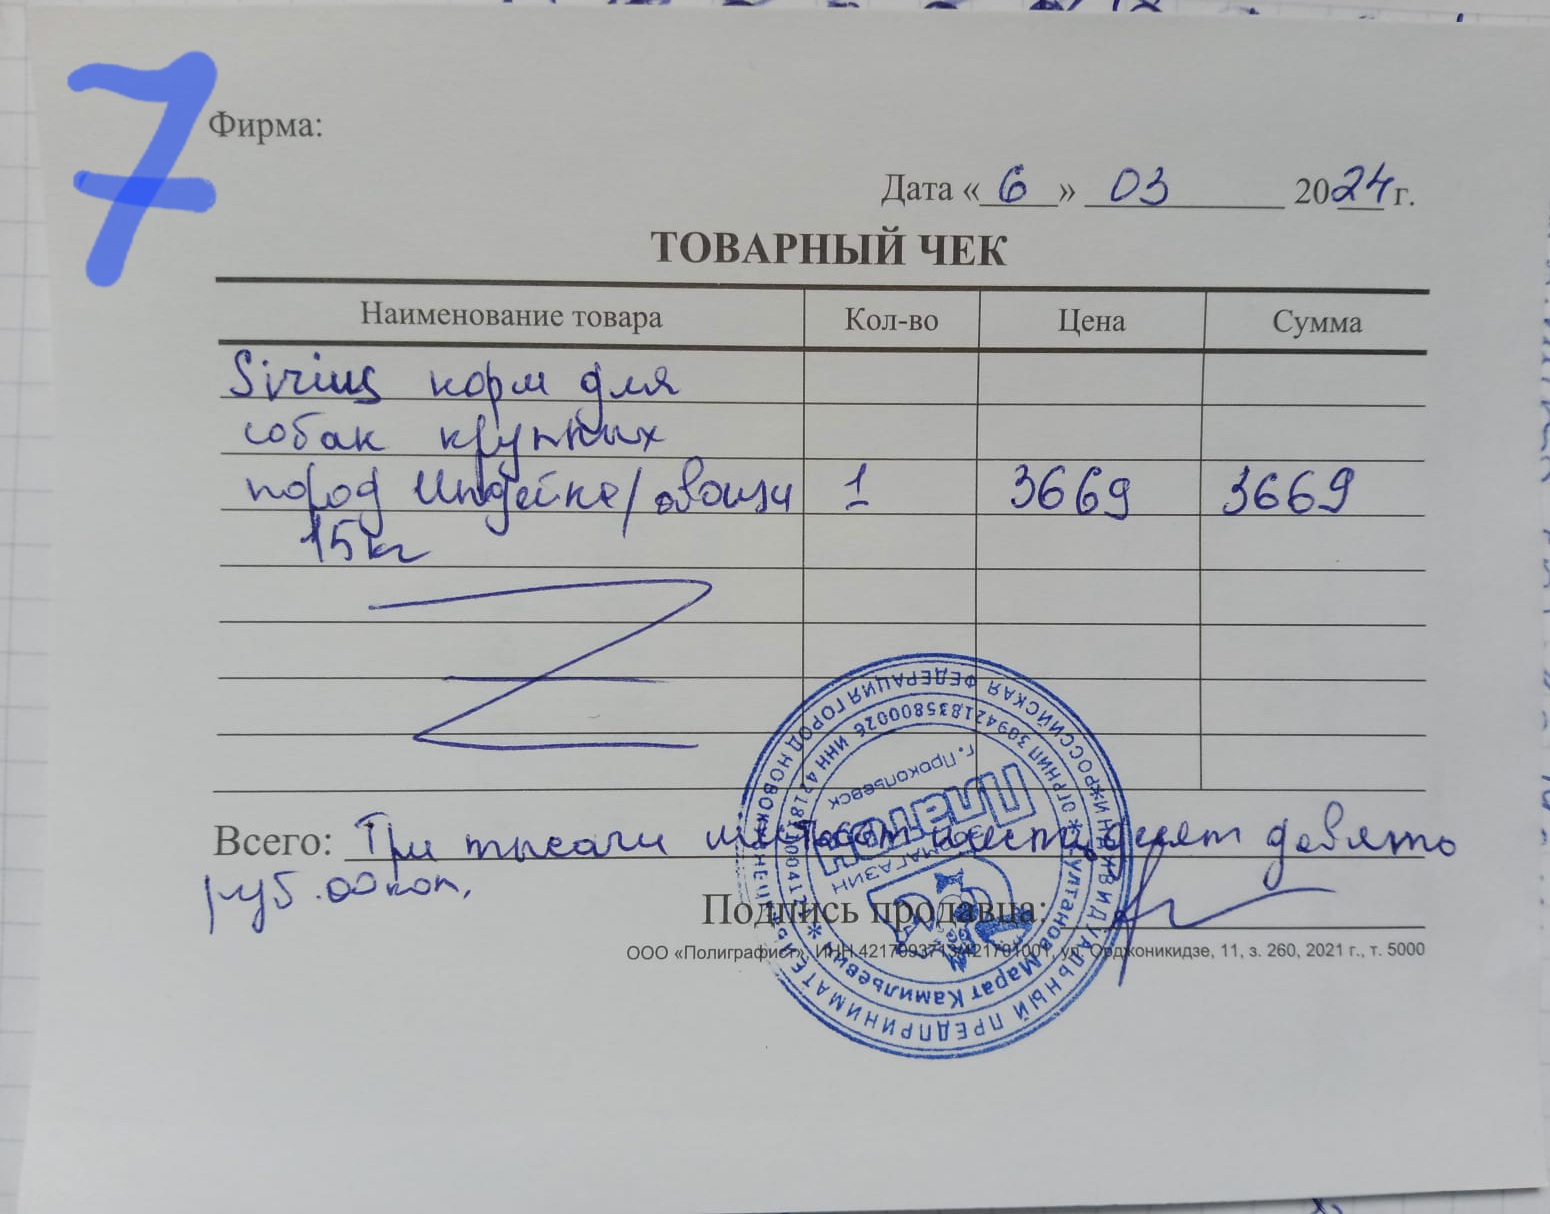 7
Фирма:
Дата «6» 03 2024 г.
ТОВАРНЫЙ ЧЕК
Наименование товара Кол-во Цена Сумма
Sirius корм для
собак крупных
пород Индейка/овощи 1 3669 3669
15кг
Всего: Три тысячи шестьсот шестьдесят девять
руб. 00 коп.
Подпись продавца:
ООО «Полиграфист», ИНН 4217093713/421701001, ул. Орджоникидзе, 11, з. 260, 2021 г., т. 5000
РОССИЙСКАЯ ФЕДЕРАЦИЯ ГОРОД НОВОКУЗНЕЦК
ИНДИВИДУАЛЬНЫЙ ПРЕДПРИНИМАТЕЛЬ
ОГРНИП 309421835800026 ИНН
Султанов Марат Камильевич
г. Прокопьевск
МАГАЗИН